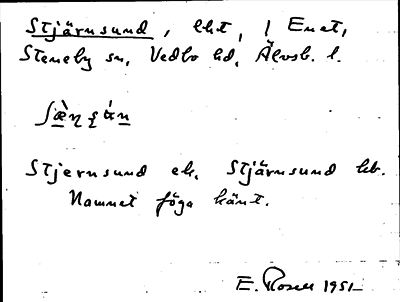 Stjärnsund, lht, 1 Enet,
Steneby sn, Vedbo hd, Älvsb. l.
Stjernsund ek. Stjärnsund kb.
Namnet föga känt.
E. Rosell 1951